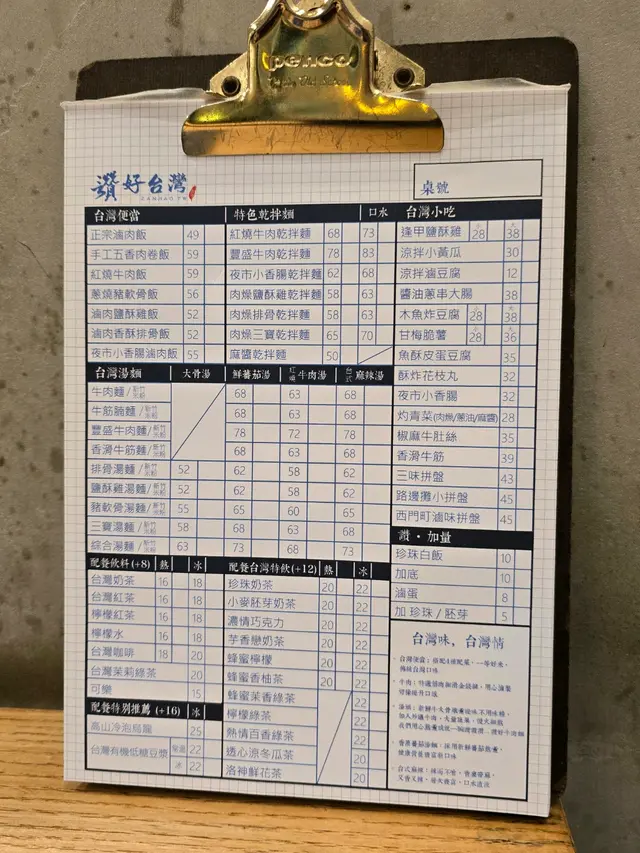 penco
讚好台灣
ZANHAO.TW
桌號
台灣便當
正宗滷肉飯 49
手工五香肉卷飯 59
紅燒牛肉飯 59
蔥燒豬軟骨飯 56
滷肉鹽酥雞飯 52
滷肉香酥排骨飯 52
夜市小香腸滷肉飯 55
特色乾拌麵 口水
紅燒牛肉乾拌麵 68 73
豐盛牛肉乾拌麵 78 83
夜市小香腸乾拌麵 62 68
肉燥鹽酥雞乾拌麵 58 63
肉燥排骨乾拌麵 58 63
肉燥三寶乾拌麵 65 70
麻醬乾拌麵 50
台灣小吃
逢甲鹽酥雞 28 大 38
涼拌小黃瓜 30
涼拌滷豆腐 12
醬油蔥串大腸 38
木魚炸豆腐 28 大 38
甘梅脆薯 28 大 36
魚酥皮蛋豆腐 35
酥炸花枝丸 32
夜市小香腸 32
灼青菜(肉燥/蔥油/麻醬) 28
椒麻牛肚絲 35
香滑牛筋 39
三味拼盤 43
路邊攤小拼盤 45
西門町滷味拼盤 45
台灣湯麵 大骨湯 鮮蕃茄湯 紅燒牛肉湯 台式麻辣湯
牛肉麵/新竹米粉 68 63 68
牛筋腩麵/新竹米粉 68 63 68
豐盛牛肉麵/新竹米粉 78 72 78
香滑牛筋麵/新竹米粉 68 63 68
排骨湯麵/新竹米粉 52 62 58 62
鹽酥雞湯麵/新竹米粉 52 62 58 62
豬軟骨湯麵/新竹米粉 55 65 60 65
三寶湯麵/新竹米粉 58 68 63 68
綜合湯麵/新竹米粉 63 73 68 73
讚・加量
珍珠白飯 10
加底 10
滷蛋 8
加珍珠/胚芽 5
配餐飲料(+8) 熱 冰
台灣奶茶 16 18
台灣紅茶 16 18
檸檬紅茶 16 18
檸檬水 16 18
台灣咖啡 18 20
台灣茉莉綠茶 20
可樂 15
配餐特別推薦 (+16) 冰
高山冷泡烏龍 25
台灣有機低糖豆漿 常溫 22
冰 22
配餐台灣特飲(+12) 熱 冰
珍珠奶茶 20 22
小麥胚芽奶茶 20 22
濃情巧克力 20 22
芋香戀奶茶 20 22
蜂蜜檸檬 20 22
蜂蜜香柚茶 20 22
蜂蜜茉香綠茶 22
檸檬綠茶 20
熱情百香綠茶 22
透心涼冬瓜茶 20
洛神鮮花茶 20
台灣味，台灣情